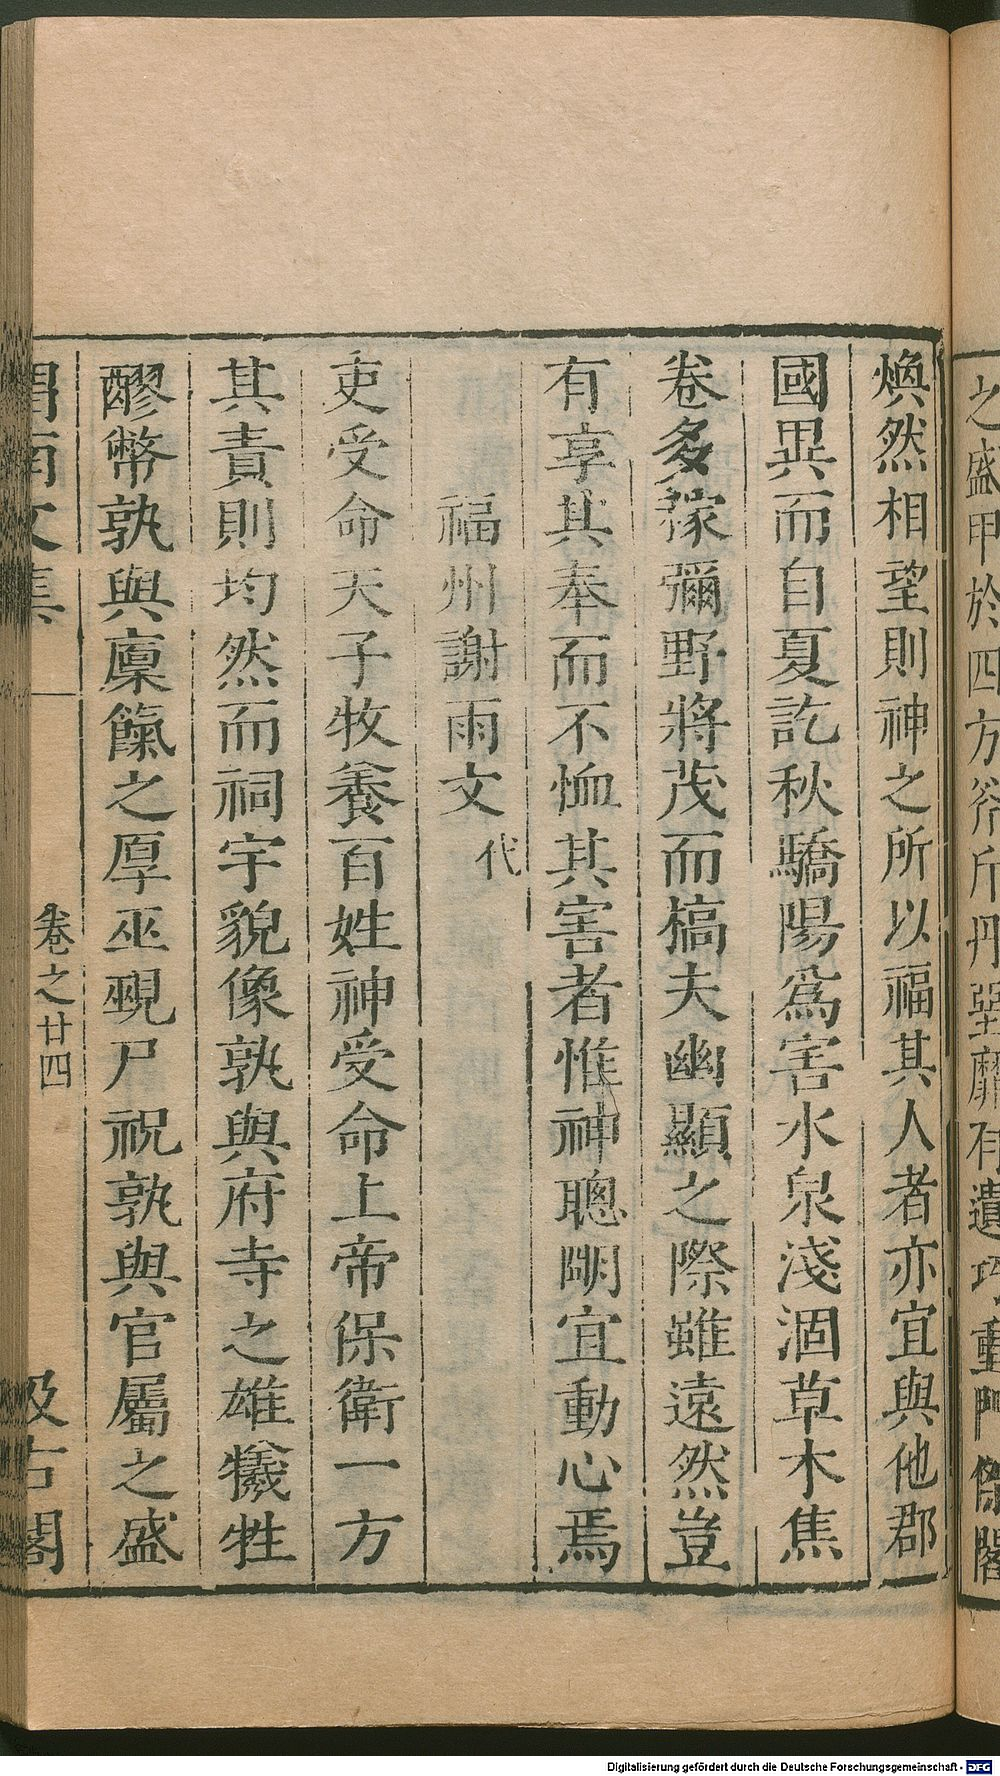 之盛甲於四方斧斤丹堊靡有遺巧重門傑閣
煥然相望則神之所以福其人者亦宜與他郡
國異而自夏訖秋驕陽爲害水泉淺涸草木焦
卷多稼彌野將茂而槁夫幽顯之際雖遠然豈
有享其奉而不恤其害者惟神聰明宜動心焉
福州謝雨文代
吏受命天子牧養百姓神受命上帝保衛一方
其責則均然而祠宇貌像孰與府寺之雄犧牲
醪幣孰與廩餼之厚巫覡尸祝孰與官屬之盛
渭南文集 卷之廿四 汲古閣
Digitalisierung gefördert durch die Deutsche Forschungsgemeinschaft - DFG